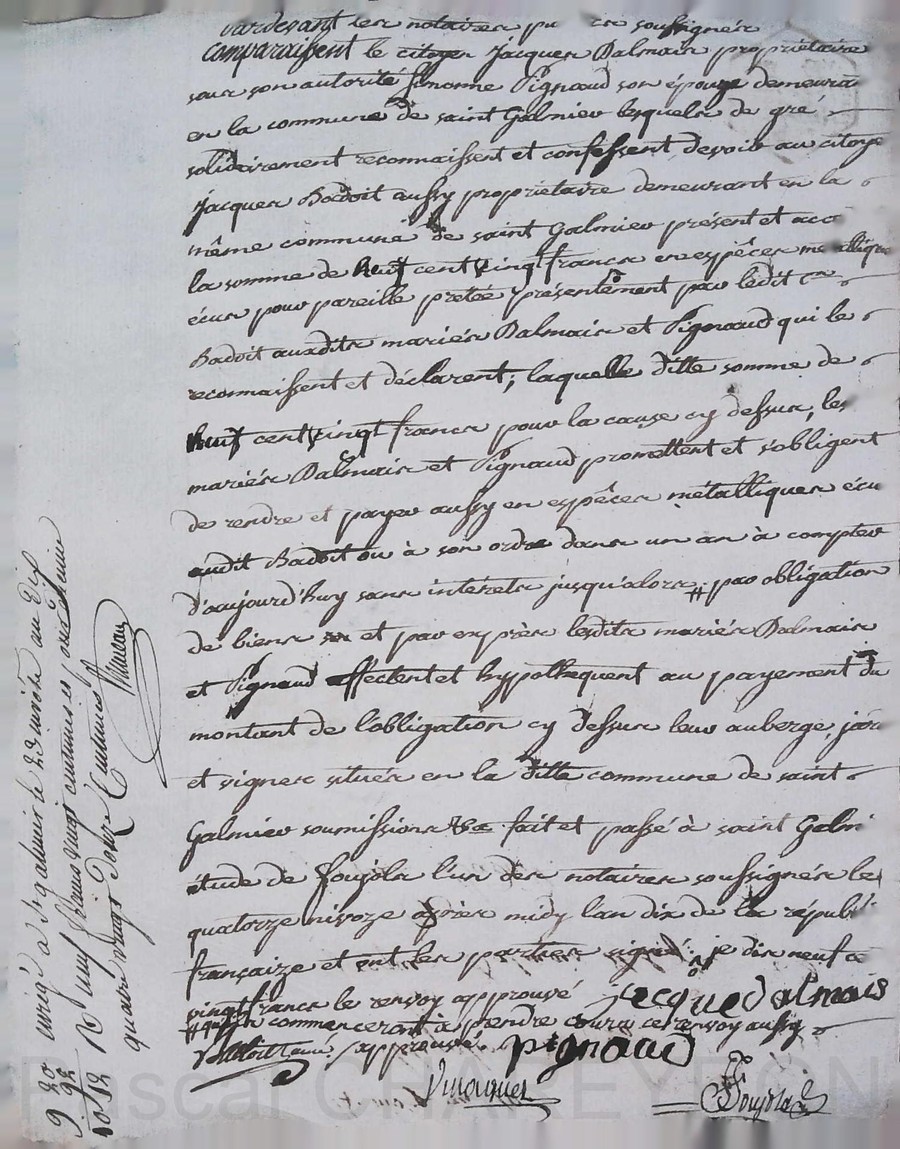 pardevant les notaires soussignés
comparaissent le citoyen Jacques Dalmais propriétaire
sous son autorité Simonne Pignaud son épouse demeura
en la commune de saint Galmier lesquels de gré
solidairement reconnaissent et confessent devoir au citoye
Jacques Badoit aussy propriétaire demeurant en la
même commune de saint Galmier présent et acce
la somme de neuf cent vingt francs en espèces métallique
écus pour pareille pretée présentement par ledit Cen
Badoit auxdits mariés Dalmais et Pignaud qui le
reconnaissent et déclarent; laquelle ditte somme de
neuf cent vingt francs pour la cause cy dessus, les
mariés Dalmais et Pignaud promettent et s'obligent
de rendre et payer aussy en espèces métalliques écu
audit Badoit ou à son ordre dans un an à compter
d'aujourd'huy sans intérets jusqu'alors # par obligation
de biens et par exprès lesdits mariés Dalmais
et Pignaud affectent et hypothequent au payement du
montant de l'obligation cy dessus leur auberge, jar
et vignes situés en la ditte commune de saint
Galmier soumissions &a fait et passé à saint Galmi
étude de Foujols l'un des notaires soussignés le
quatorze nivoze après midy l'an dix de la républi
françaize et ont les parties signé: je dis neuf c
vingt francs le renvoy approuvé
# qui commenceront à prendre cours ce renvoy aussy
approuvé.
jacque dalmais
Badoit
pignaud
Foujols
quatre vingt douze centimes